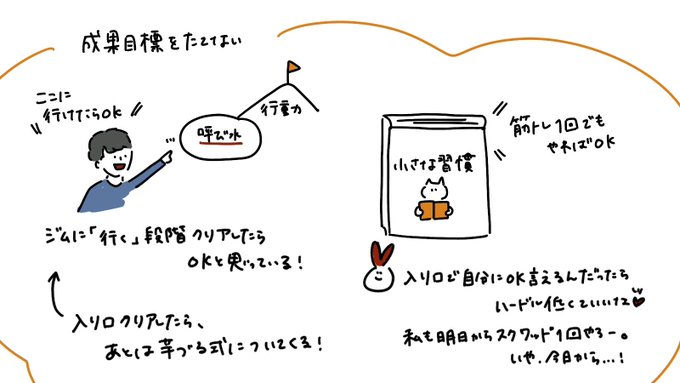 成果目標をたてない
ここに
行けたらOK
呼び水
行動
ジムに「行く」段階クリアしたら
OKと思っている！
入り口クリアしたら、
あとは芋づる式についてくる！
小さな習慣
筋トレ1回でも
やればOK
入り口で自分にOK言えるんだったら
ハードル低くていいな
私も明日からスクワット1回やろー。
いや、今日から…！